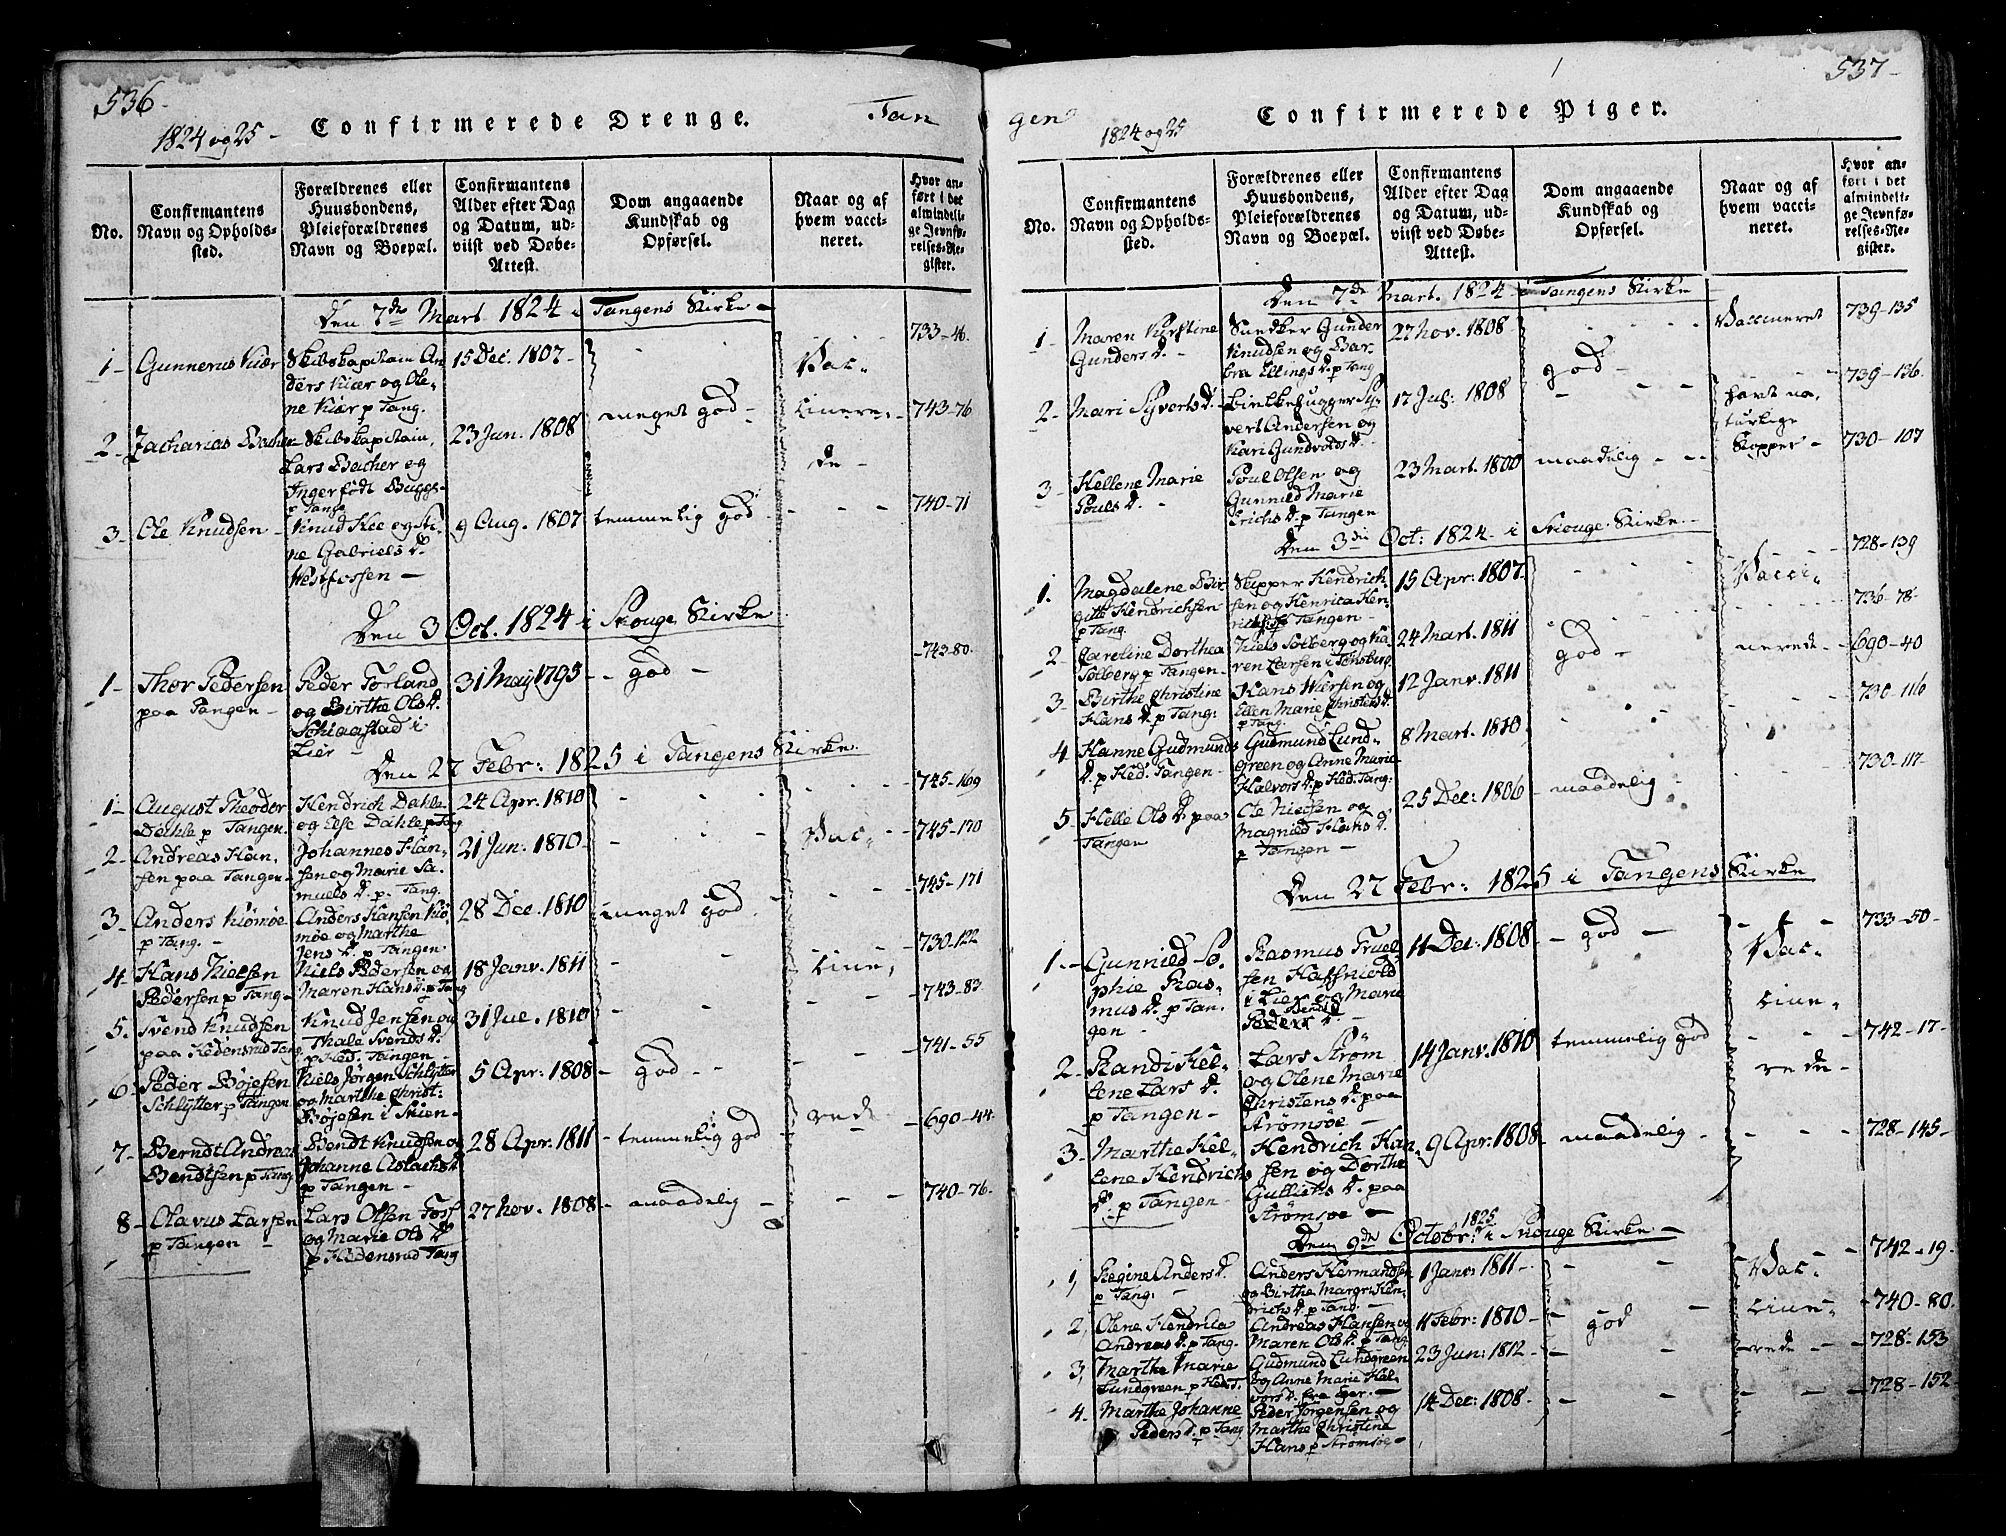 536
1824 og 25 -
Confirmerede Drenge.
Tan
No.
Confirmantens
Navn og Opholds-
sted.
Forældrenes eller
Huusbondens,
Pleieforældrenes
Navn og Boepæl.
Confirmantens
Alder efter Dag
og Datum, ud-
viist ved Døbe-
Attest.
Dom angaaende
Kundskab og
Opførsel.
Naar og af
hvem vacci-
neret.
Hvor an-
ført i det
almindeli-
ge Jevnfø-
relses-Re-
gister.
Den 7de Mart. 1824 i Tangens Kirke -
1 - Gunnerus Kiær
Skibskapitain An-
ders Kiær og Ole-
ne Kiær p Tang.
15 Dec. 1807 -
Vac-
733-46.
2 - Zacharias Bacher
Skibskapitain
Lars Bacher og
Inger født Bugge
p Tange
23 Jun. 1808
meget god -
cinere-
de -
743-76
3 - Ole Knudsen
Knud Kee og Sti-
ne Gabriels D.
Westfossen -
9 Aug. 1807
temmelig god -
740-71
Den 3 Oct. 1824 i Skouge Kirke
1 - Thor Pedersen
paa Tangen -
Peder Torland
og Birthe Ols D.
Schiaastad i
Lier -
31 Maj 1795
- god -
743-80.
Den 27 Febr: 1825 i Tangens Kirke.
1 - August Theodor
Dahle p Tangen.
Hendrich Dahle
og Else Dahle p Tang
24 Apr. 1810
745-169
2 - Andreas Han-
sen paa Tangen -
Johannes Han-
sen og Marie Sa-
muels D. p. Tang.
21 Jun: 1810 -
Vac-
745-170
3 - Anders Kiømøe
p Tang. -
Anders Hansen Kiø-
møe og Marthe
Jens D. p Tangen.
28 Dec. 1810
meget god
745-171
4 - Hans Nielsen
Pedersen p Tang -
Niels Pedersen og
Maren Hans D. p Tang
18 Janv. 1811
cine-
730-122
5. Svend Knudsen
paa Hedensrud Tang.
Knud Jensen og
Thale Svends D.
p Hed. Tangen -
31 Jul. 1810
743-83
6 - Peder Bøjesen
Schlytter p Tangen
Niels Jørgen Schlytter
og Marthe Christ:
Bøjesen i Skien -
5 Apr: 1808
- god -
741-55
7 - Berndt Andreas
Bendtsen p Tang
Bendt Knudsen og
Johanne Aslachs D
p Tangen -
28 Apr. 1811
- temmelig god
rede
690-44
8 - Olavus Larsen
p Tangen -
Lars Olsen Foss
og Marie Ols D
p Hedensrud Tang
27 Nov. 1808
- maadelig -
740-76.
537 -
gen
1824 og 25
Confirmerede Piger.
No.
Confirmantens
Navn og Opholds-
sted.
Forældrenes eller
Huusbondens,
Pleieforældrenes
Navn og Boepæl.
Confirmantens
Alder efter Dag
og Datum, ud-
viist ved Døbe-
Attest.
Dom angaaende
Kundskab og
Opførsel.
Naar og af
hvem vacci-
neret.
Hvor an-
ført i det
almindeli-
ge Jevnfø-
relses-Re-
gister.
Den 7de Mart. 1824 i Tangens Kirke
1 - Maren Kirstine
Gunders D. -
Snedker Gunder
Knudsen og Bar-
bra Ellings D. p Tang
27 Nov. 1808
Vaccineret
739-135
2 - Mari Syverts D. -
Bielkehugger Sy-
vert Andersen og
Kari Gundvolds D.
17 Jul: 1808
god -
havt na-
turlige
Kopper -
739-136.
3 - Hellene Marie
Pouls D. -
Poul Olsen og
Gunnild Marie
Erichs D. p Tangen
23 Mart. 1800
maadelig - -
730-107
Den 3die Oct: 1824 i Skouge Kirke -
1. Magdalene Bir-
gitt Hendrichsen
p Tang.
Skipper Hendrich-
sen og Henrica Hen-
Tangen -
15 Apr: 1807
Vacci-
728-139
2 - Caroline Dorthea
Solberg p Tangen -
Niels Solberg og Ka-
ren Larsen i Tønsberg
24 Mart. 1811
god -
nerede -
736-78
3 - Birthe Christine
Hans D. p Tang:
Hans Wiersen og
Ellen Marie Christens D.
p Tang.
12 Janv. 1811
690-40
4 Hanne Gudmunds
D. p Hed. Tangen -
Gudmund Lund-
green og Anne Marie
Halvors D. p Hed. Tang:
8 Mart. 1810
730-116
5 - Helle Ols D. paa
Tangen
Ole Nielsen og
Magnild D.
p Tangen -
25 Dec: 1806
- maadelig
730-117
Den 27 Febr: 1825 i Tangens Kirke
1. - Gunnild So-
phie Ras-
mus D. p Tan-
gen -
Rasmus Truel-
sen
i Lier og Marie
Peders D. -
11 Dec: 1808
- god -
Vac-
cine-
733-50 -
2 - Randi Hel-
lene Lars D.
p Tangen -
Lars Strøm
og Olene Marie
Christens D. paa
Strømsøe -
14 Janv. 1810
temmelig god
rede -
742-17 -
3 - Marthe Hel-
lene Hendrichs
D. p Tangen -
Hendrich Han-
sen og Dorthe
Gullichs D. paa
Strømsøe -
9 Apr. 1808
- maadelig -
728-145 -
Den 9de Octobr: 1825 i Skouge Kirke -
1, Regine Anders D.
p Tang: -
Anders Hermandsen
og Birthe Margr: Hen-
drichs D. p Tang. -
1 Janv 1811 -
Vac-
742-19.
2, Olene Hendrica
Andreas D. p Tang.
Andreas Hansen og
Maren Ols D. p Tang
11 Febr: 1810 -
god
cine-
740-80.
3, Marthe Marie
Lundgreen p Hed. T.
Gudmund Lundgreen
og Anne Marie Hal-
vors D. fra Eger. -
23 Jun: 1812 -
rede
728-153
4. Marthe Johanne
Peders D. p Tang.
Peder Jørgensen og
Marthe Christine
Hans p Strømsøe -
14 Dec: 1808.
728-152